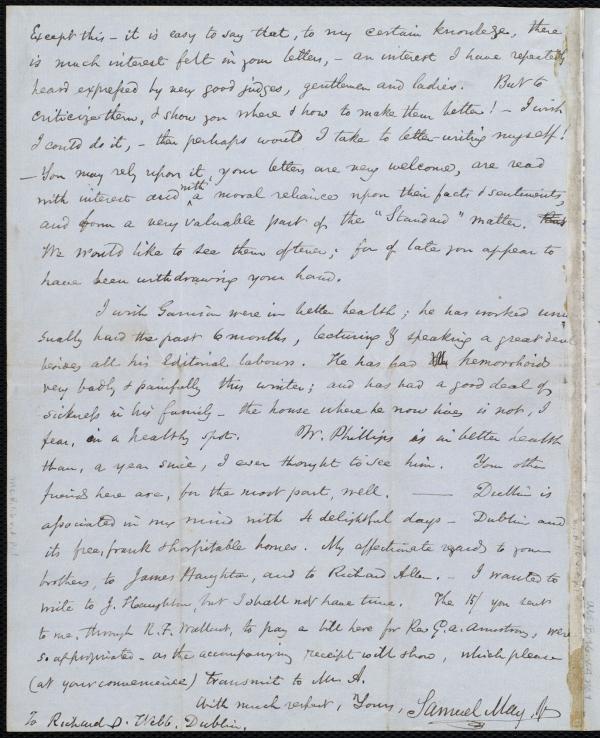 Except this - it is easy to say that, to my certain knowledge, there
is much interest felt in your letters, - an interest I have repeatedly
heard expressed by very good judges, gentlemen and ladies. But to
criticize them, & show you where & how to make them better! - I wish
I could do it, - then perhaps would I take to letter-writing myself!
- You may rely upon it, your letters are very welcome, are read
with interest and with a moral reliance upon their facts & sentiments,
and form a very valuable part of the "Standard" matter.
We would like to see them oftener; for of late you appear to
have been withdrawing your hand.
I wish Garrison were in better health; he has worked unu
sually hard the past 6 months, lecturing & speaking a great deal
besides all his Editorial labours. He has had hemorrhoids
very badly & painfully this winter; and has had a good deal of
sickness in his family - the house where he now lives is not, I
fear, in a healthy spot. W. Phillips is in better health
than, a year since, I ever thought to see him. Your other
friends here are, for the most part, well. — Dublin is
associated in my mind with 4 delightful days - Dublin and
its free, frank & hospitable homes. My affectionate regards to your
brothers, to James Haughton, and to Richard Allen. - I wanted to
write to J. Haughton, but I shall not have time. The 15/ you sent
to me, through R.F. Wallcut, to pay a bill here for Rev. G.A. Armstrong, were
so appropriated - as the accompanying receipt will show, which please
(at your convenience) transmit to Mr A.
With much respect, Yours, Samuel May, Jr
To Richard D. Webb, Dublin.